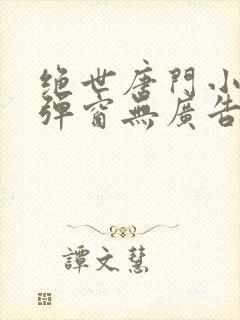 绝世唐門小
彈窗無廣告
譚文慧